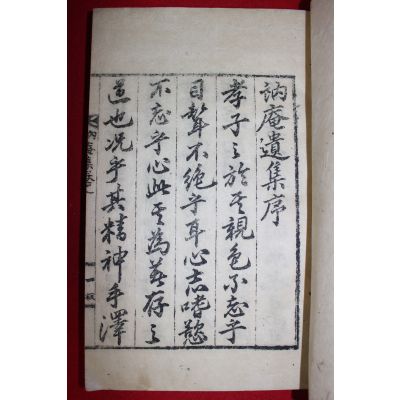 訥庵遺集序
孝子之於其親色不忘乎
目聲不絶乎耳心志嗜慾
不忘乎心此其為著存之
道也况乎其精神手澤